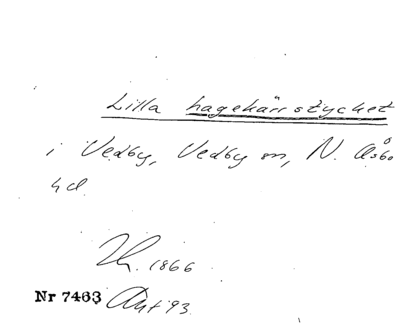 Lilla hagekärrstycket
i Vedby, Vedby sn, N. Åsbo
hd.
1866
Nr 7463